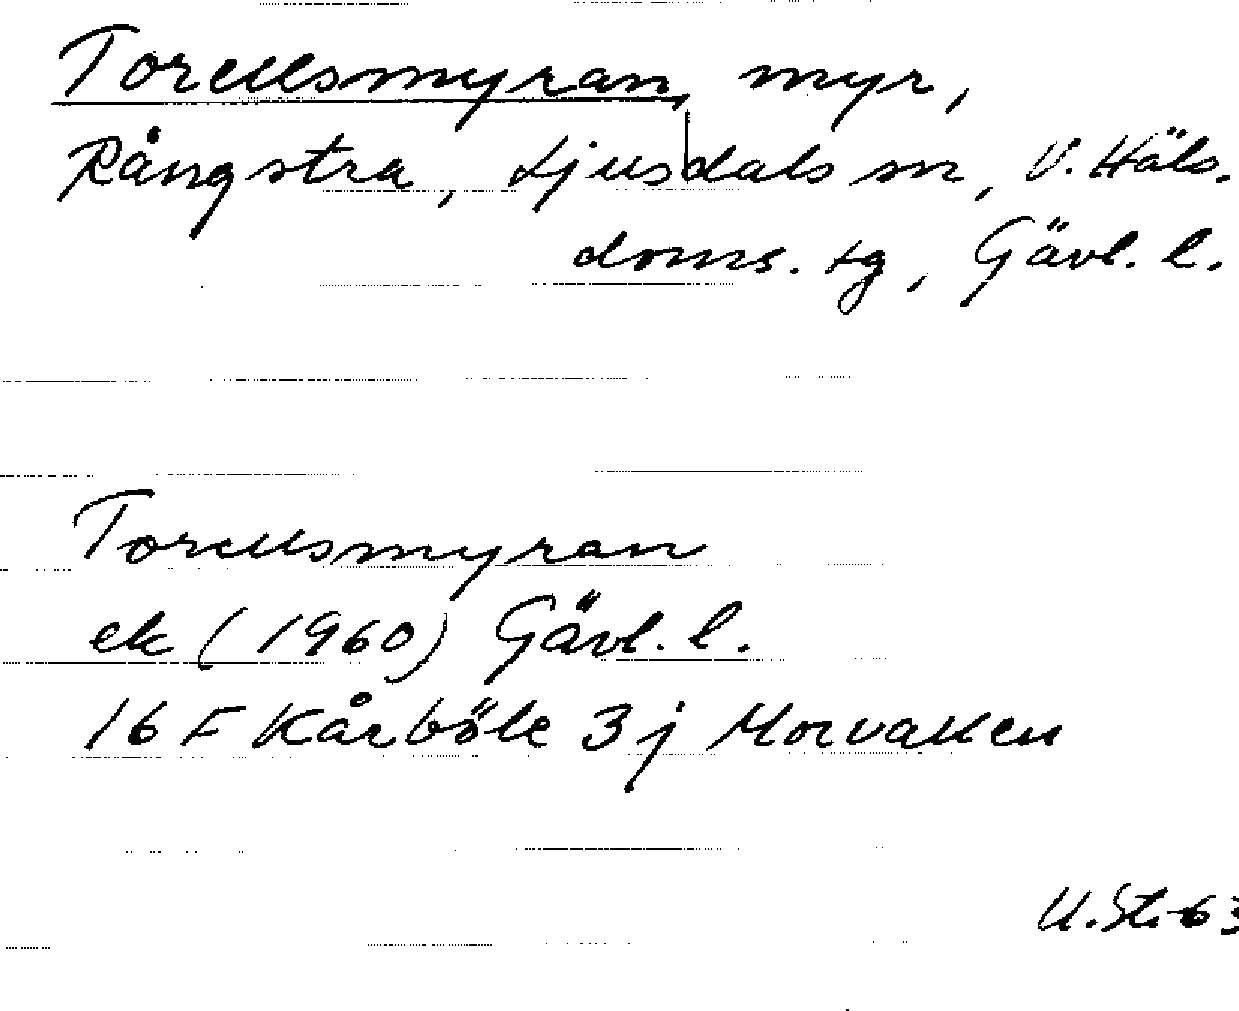 Torellsmyran, myr,
Rångstra, Ljusdals sn, V. Häls.
doms. tg, Gävl. l.
Torellsmyran
ek (1960) Gävl. l.
16 F Kårböle 3 j Morvallen
U. St. 63